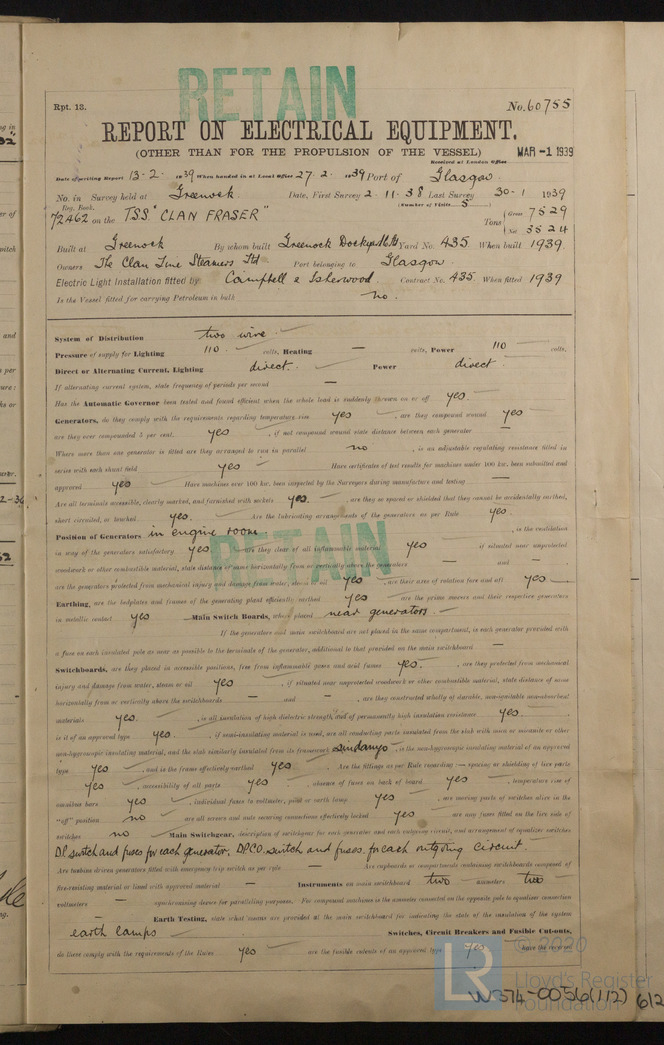 RETAIN
Rpt. 13.
No. 60755
REPORT ON ELECTRICAL EQUIPMENT.
(OTHER THAN FOR THE PROPULSION OF THE VESSEL)
MAR -1 1939
Received at London Office
Date of writing Report 13-2- 1939 When handed in at Local Office 27.2. 1939 Port of Glasgow
No. in Survey held at Greenock Date, First Survey 2-11-38 Last Survey 30-1 1939
Reg. Book. (Number of Visits 5)
72462 on the T.S.S. "CLAN FRASER" Tons { Gross 7529
Net 3524
Built at Greenock By whom built Greenock Dockyard Co Ltd Yard No. 435 When built 1939
Owners The Clan Line Steamers Ltd Port belonging to Glasgow
Electric Light Installation fitted by Campbell & Isherwood Contract No. 435 When fitted 1939
Is the Vessel fitted for carrying Petroleum in bulk no.
System of Distribution two wire
Pressure of supply for Lighting 110 volts, Heating — volts, Power 110 volts.
Direct or Alternating Current, Lighting direct. Power direct
If alternating current system, state frequency of periods per second —
Has the Automatic Governor been tested and found efficient when the whole load is suddenly thrown on or off yes.
Generators, do they comply with the requirements regarding temperature rise yes, are they compound wound yes
are they over compounded 5 per cent. yes, if not compound wound state distance between each generator —
Where more than one generator is fitted are they arranged to run in parallel no, is an adjustable regulating resistance fitted in
series with each shunt field yes Have certificates of test results for machines under 100 kw. been submitted and
approved yes Have machines over 100 kw. been inspected by the Surveyors during manufacture and testing —
Are all terminals accessible, clearly marked, and furnished with sockets yes., are they so spaced or shielded that they cannot be accidentally earthed,
short circuited, or touched yes. Are the lubricating arrangements of the generators as per Rule yes.
Position of Generators in engine room. , is the ventilation
in way of the generators satisfactory yes are they clear of all inflammable material yes if situated near unprotected
woodwork or other combustible material, state distance of same horizontally from or vertically above the generators — and —
are the generators protected from mechanical injury and damage from water, steam or oil yes, are their axes of rotation fore and aft yes
Earthing, are the bedplates and frames of the generating plant efficiently earthed yes are the prime movers and their respective generators
in metallic contact yes Main Switch Boards, where placed near generators.
RETAIN
If the generators and main switchboard are not placed in the same compartment, is each generator provided with
a fuse on each insulated pole as near as possible to the terminals of the generator, additional to that provided on the main switchboard —
Switchboards, are they placed in accessible positions, free from inflammable gases and acid fumes yes., are they protected from mechanical
injury and damage from water, steam or oil yes, if situated near unprotected woodwork or other combustible material, state distance of same
horizontally from or vertically above the switchboards — and —, are they constructed wholly of durable, non-ignitable non-absorbent
materials yes., is all insulation of high dielectric strength and of permanently high insulation resistance yes.
is it of an approved type yes., if semi-insulating material is used, are all conducting parts insulated from the slab with mica or micanite or other
non-hygroscopic insulating material, and the slab similarly insulated from its framework sindanyo, is the non-hygroscopic insulating material of an approved
type yes, and is the frame effectively earthed yes. Are the fittings as per Rule regarding:— spacing or shielding of live parts
yes, accessibility of all parts yes, absence of fuses on back of board yes, temperature rise of
omnibus bars yes, individual fuses to voltmeter, pilot or earth lamp yes, are moving parts of switches alive in the
"off" position no are all screws and nuts securing connections effectively locked yes are any fuses fitted on the live side of
switches no Main Switchgear, description of switchgear for each generator and each outgoing circuit, and arrangement of equalizer switches
D.P. switch and fuses for each generator, D.P.C.O. switch and fuses for each outgoing circuit.
Are turbine driven generators fitted with emergency trip switch as per rule — Are cupboards or compartments containing switchboards composed of
fire-resisting material or lined with approved material — Instruments on main switchboard two ammeters two
voltmeters — synchronising device for paralleling purposes. For compound machines is the ammeter connected on the opposite pole to equaliser connection
— Earth Testing, state what means are provided at the main switchboard for indicating the state of the insulation of the system
earth lamps Switches, Circuit Breakers and Fusible Cut-outs,
do these comply with the requirements of the Rules yes are the fusible cutouts of an approved type yes have the reversed
LR © 2020
Lloyd's Register
Foundation
W374-0056(1/2) 6/2